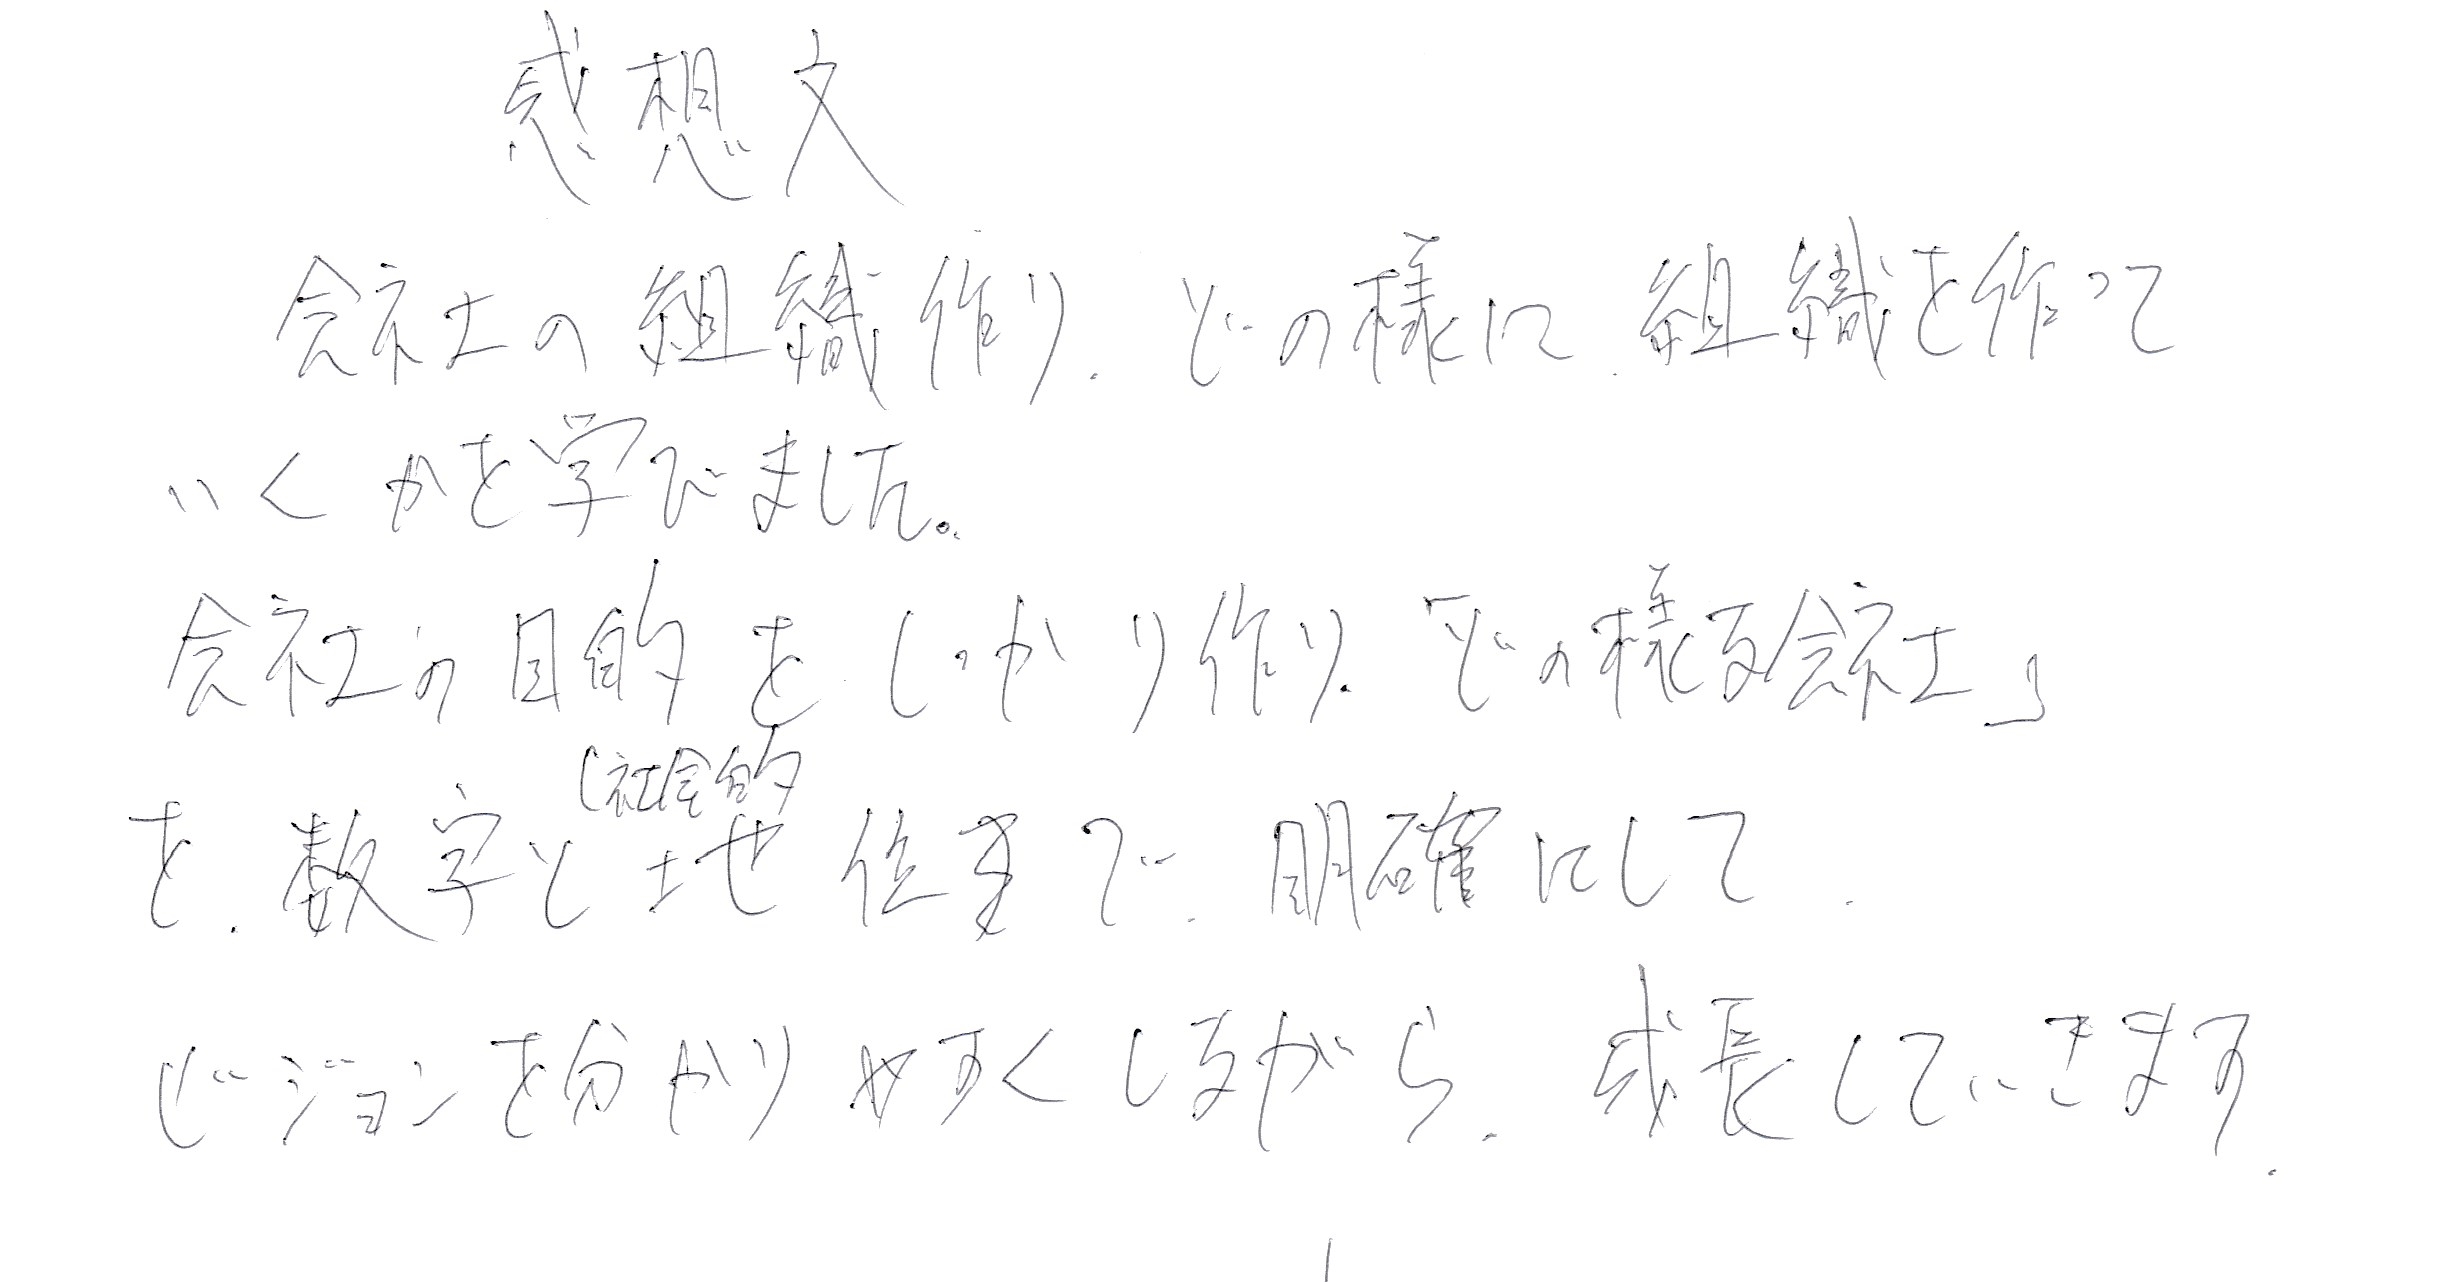 感想文
会社の組織作り、どの様に、組織を作って
いくかを学びました。
会社の目的をしっかり作り、「どの様な会社」
(社会的
を、数字と地位まで、明確にして、
ビジョンを分かりやすくしながら、成長していきます、